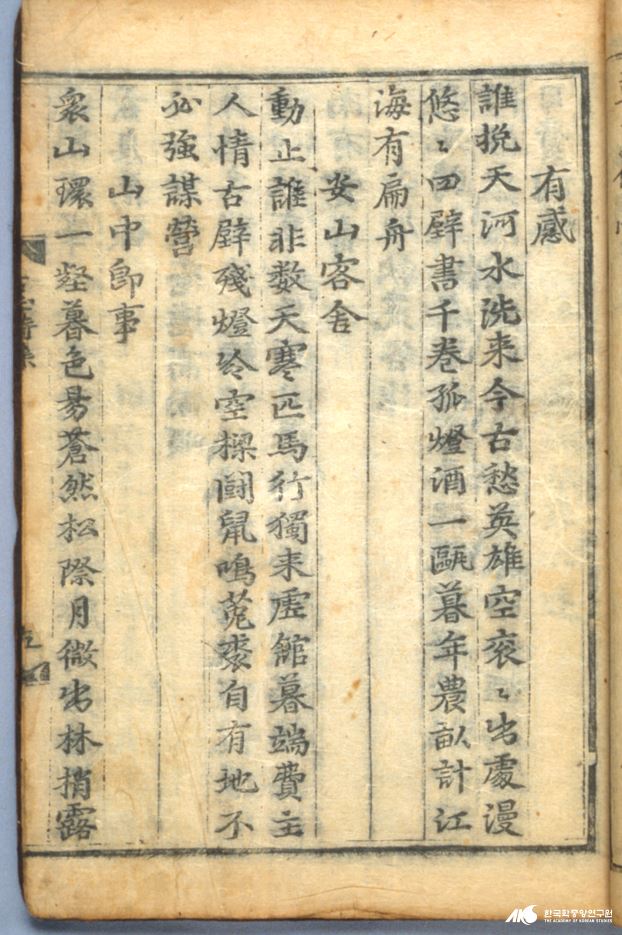 有感
誰挽天河水洗来今古愁英雄空衮〻出處漫
悠〻四壁書千卷孤燈酒一甌暮年農畝計江
海有扁舟
安山客舍
動止誰非数天寒匹馬行獨来虛館暮端費主
人情古壁殘燈冷空樑鬪鼠鳴菟裘自有地不
必強謀營
山中卽事
衆山環一壑暮色易蒼然松際月微出林捎露
AKS 한국학중앙연구원
THE ACADEMY OF KOREAN STUDIES